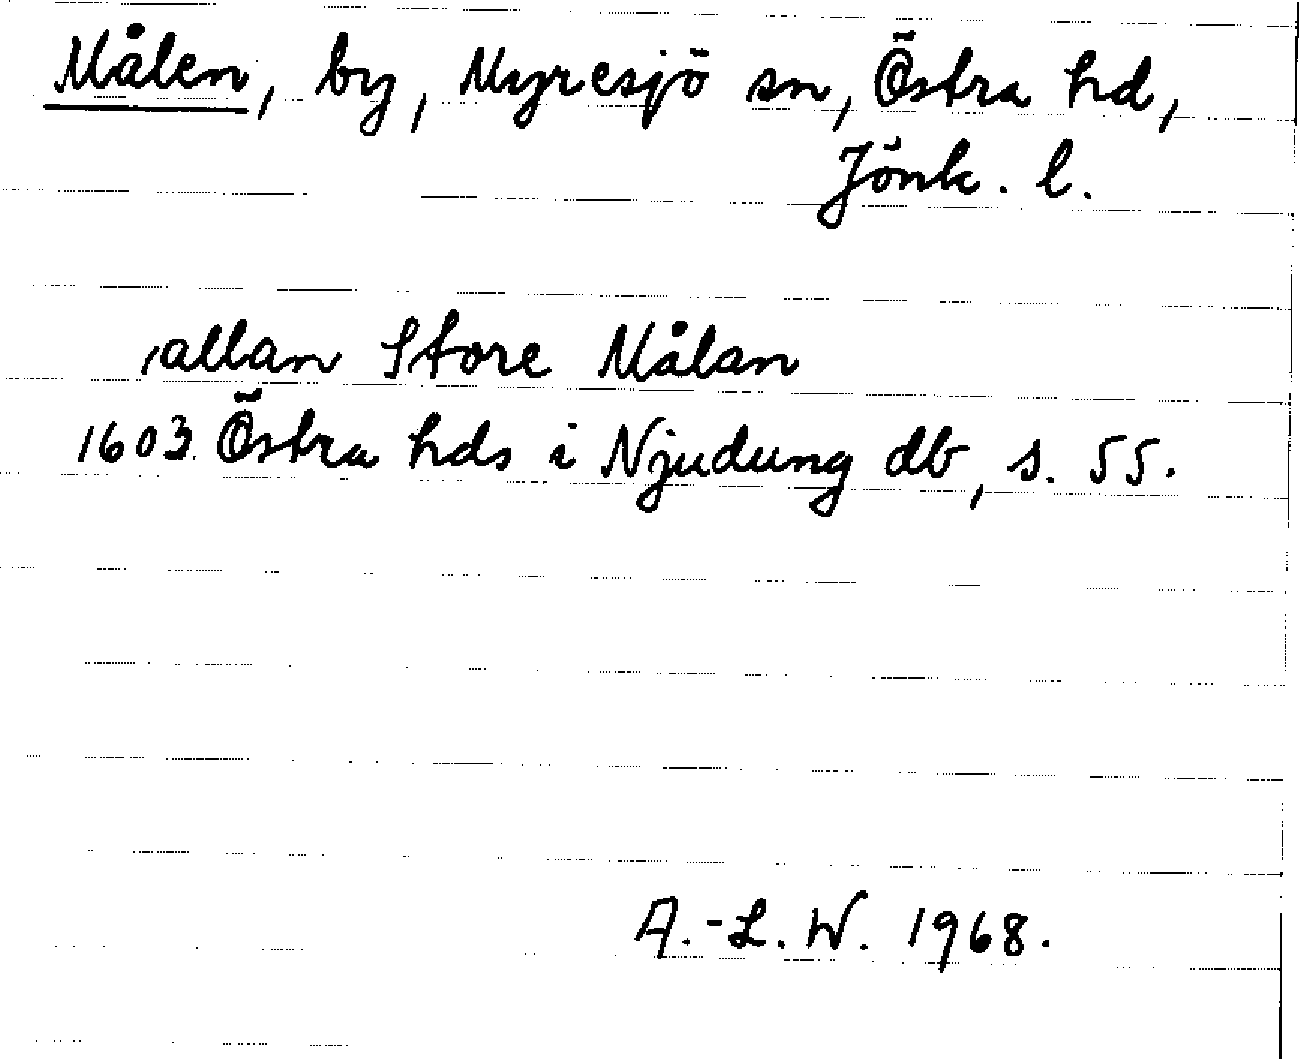 Målen, by, Myresjö sn, Östra hd,
Jönk. l.
,allan Store Målan
1603 Östra hds i Njudung db, s. 55.
A.-L. W. 1968.